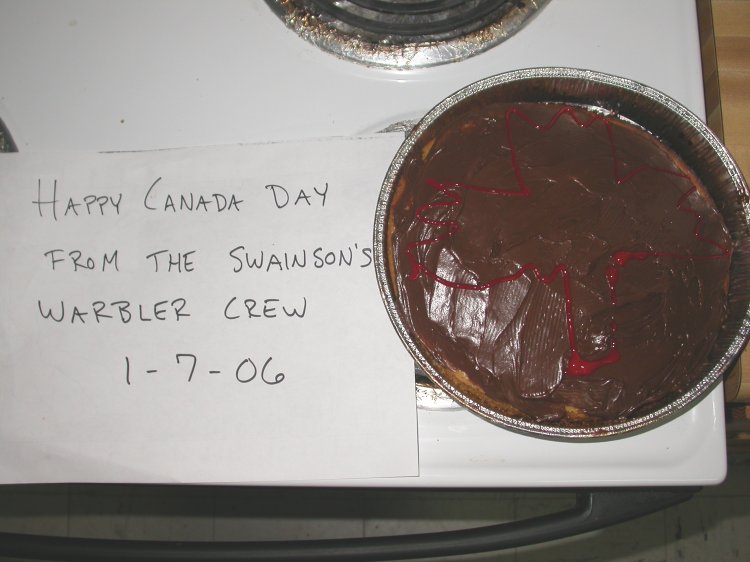 HAPPY CANADA DAY
FROM THE SWAINSON'S
WARBLER CREW
1-7-06